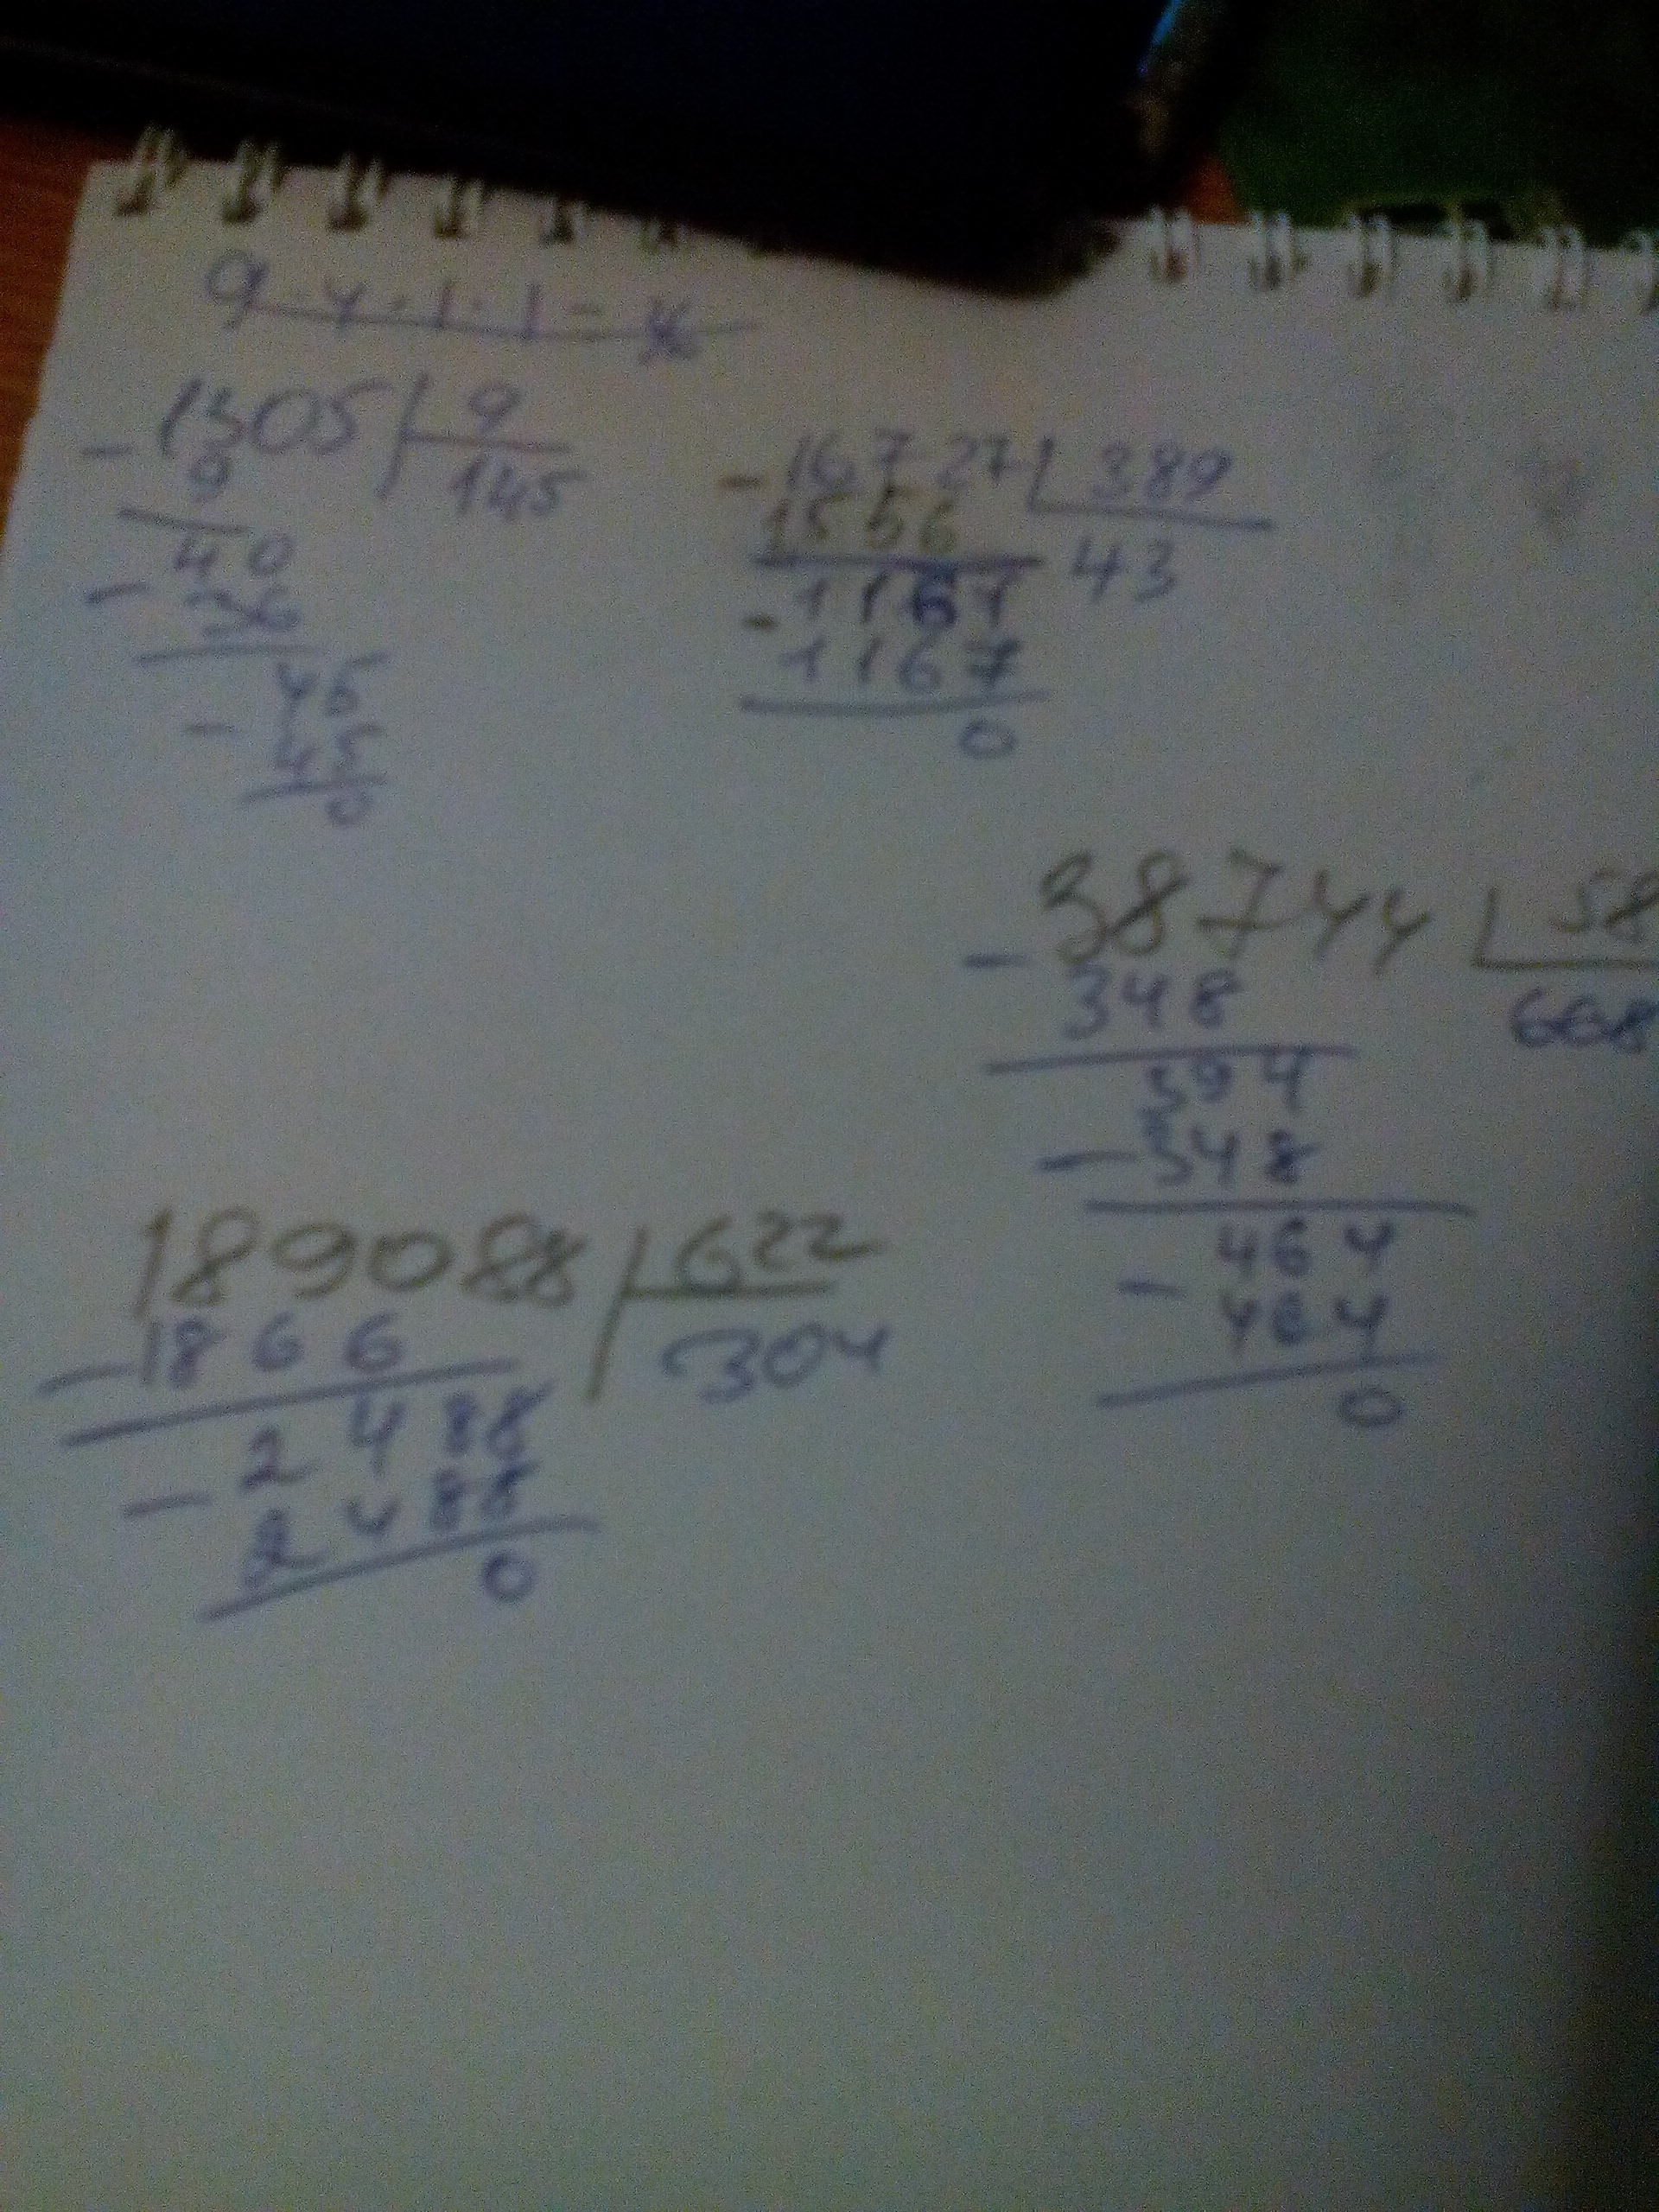 1305 9
- 9 145
40
- 36
45
- 45
0
- 16727 389
1556 43
1167
- 1167
0
38744 58
- 348 668
394
- 348
464
- 464
0
189088 622
- 1866 304
2488
- 2488
0